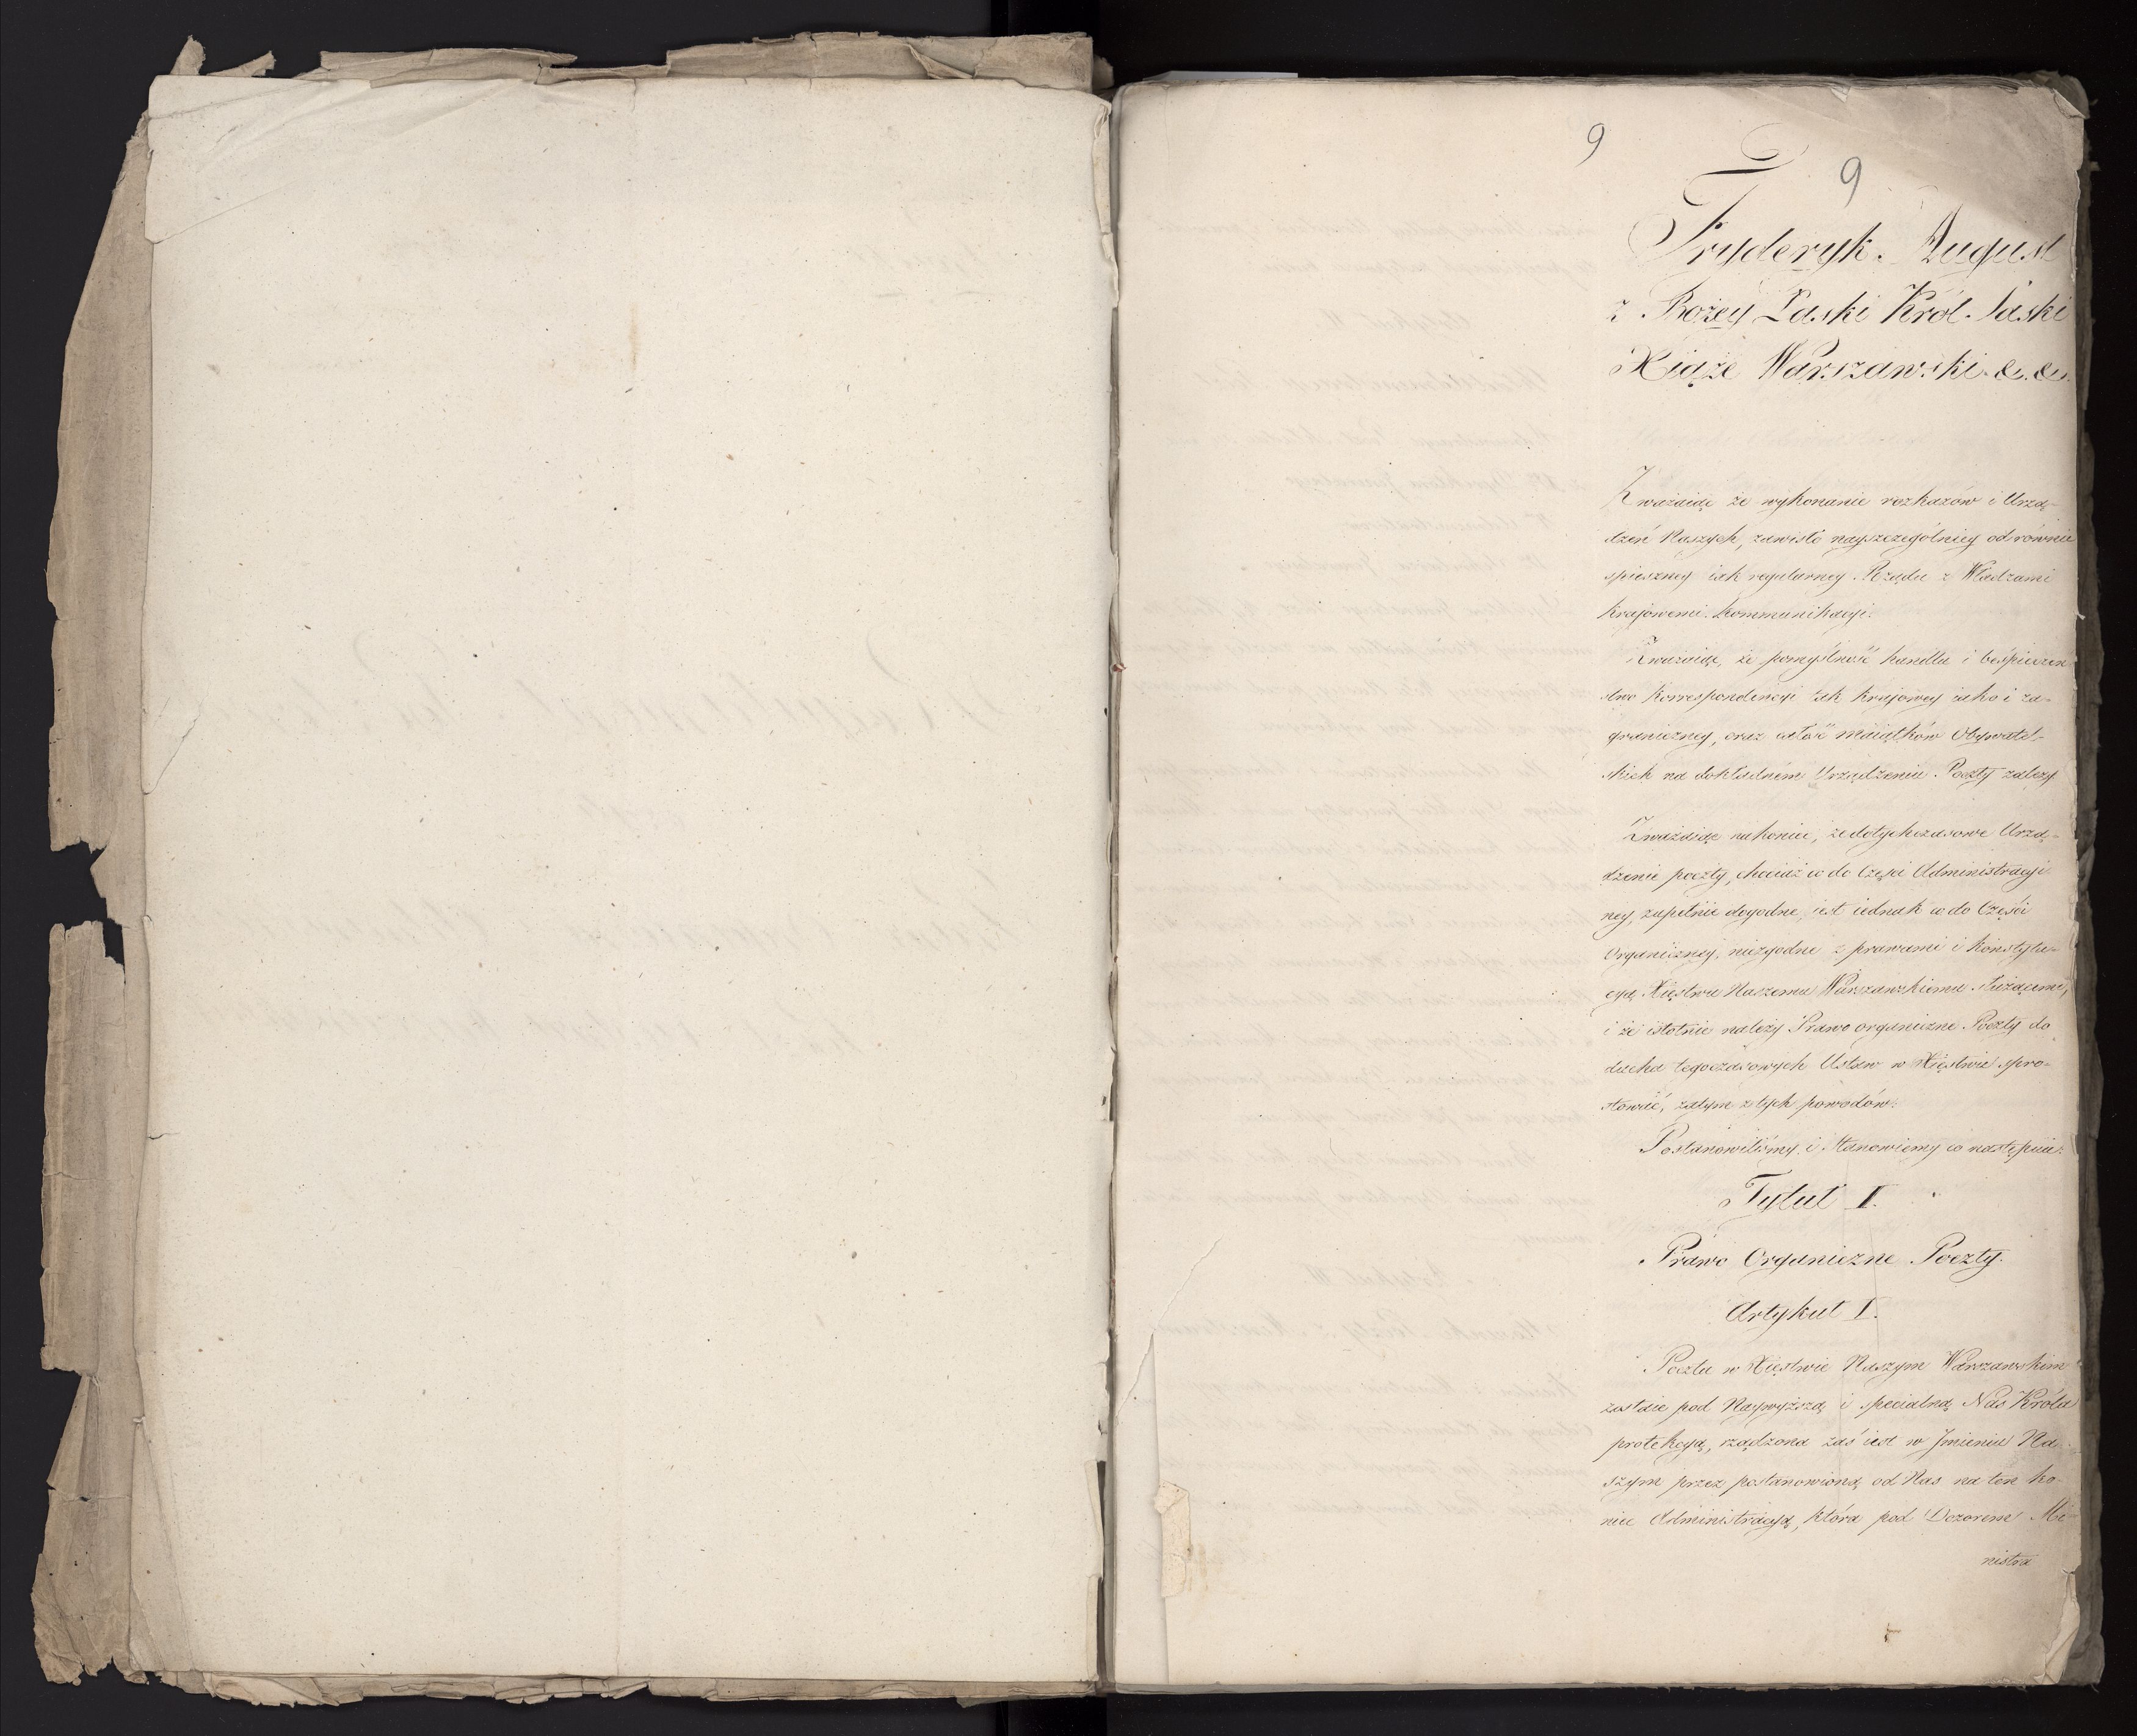 9
9
Fryderyk August
z Bożey Łaski Król Saski
Xiąże Warszawski &. &.
Zważaiąc że wykonanie rozkazów i Urzą-
dzeń Naszych, zawisło nayszczególniey od równie
spieszney iak regularney Rządu z Władzami
Krajowemi Kommunikacyi.
Zważaiąc, że pomyślność handlu i beśpieczeń
stwo Korrespondencyi tak Krajowey iako i za-
graniczney, oraz całość maiątków Obywatel-
skich na dokładném Urządzeniu Poczty zależy
Zważaiąc nakoniec, że dotychczasowe Urzą-
dzenie poczty, chociaż co do Części Administracyi
ney, zupełnie dogodne, iest iednak co do Części
Organiczney, niezgodne z prawami i Konstytu-
cyą Xięstwu Naszemu Warszawskiemu służącemi,
i że istotnie należy Prawo organiczne Poczty do
ducha tegoczasowych Ustaw w Xięstwie spro-
stować, zatym z tych powodów:
Postanowiliśmy i Stanowiemy co następuie:
Tytuł I.
Prawo Organiczne Poczty.
Artykuł I.
Poczta w Xięstwie Naszym Warszawskim
zostaie pod Naywyższą i specialną Nas Króla
protekcyą, rządzona zaś iest w Jmieniu Na-
szym przez postanowioną od Nas na ten ko-
niec Administracyą, która pod Dozorem Mi-
nistra